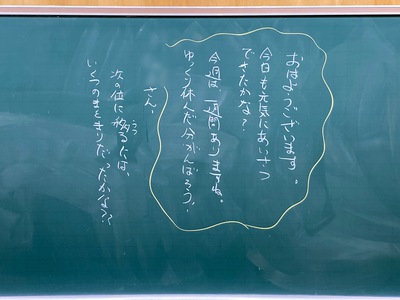 おはようございます。
今日も元気にあいさつ
できたかな？
今週は、一週間ありますね。
ゆっくり休んだ分がんばろう。
さん。
次の位に移るたは、
うつ
いくつのまとまりだったかな？